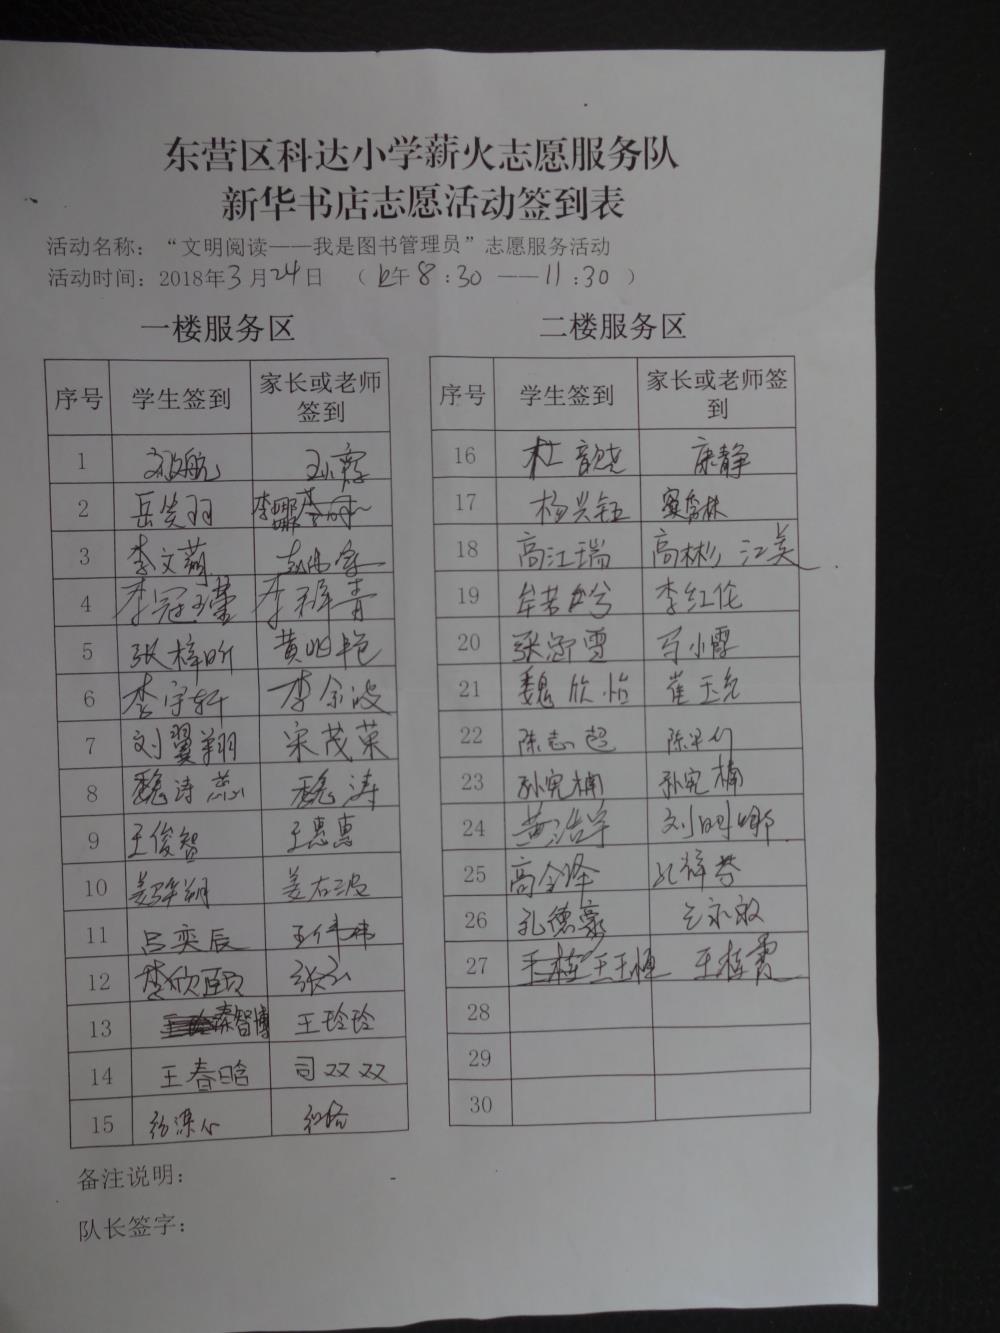 东营区科达小学薪火志愿服务队
新华书店志愿活动签到表
活动名称：“文明阅读——我是图书管理员”志愿服务活动
活动时间：2018年3月24日 （上午8:30 ——11:30 ）
一楼服务区
序号 学生签到 家长或老师签到
1
2
3 李文萌
4 李冠莹 李雅青
5 张梓昕 黄明艳
6 李宇轩 李余波
7 刘翼翔 宋茂荣
8 魏涛蕊 魏涛
9 王俊智 王惠惠
10 姜右波
11 吕奕辰 王伟伟
12 李欣颐 张弘
13 秦智博 王玲玲
14 王春晗 司双双
15
二楼服务区
序号 学生签到 家长或老师签到
16 杜韵尧 康静
17 杨兴钰
18 高江瑞 高彬 江美
19 李红伦
20 张涵雪 马小霞
21 魏欣怡 崔玉允
22 陈志超
23 孙宪楠 孙宪楠
24 黄浩宇 刘明娜
25 高金泽
26 孔德豪
27 王桂霞
28
29
30
备注说明：
队长签字：